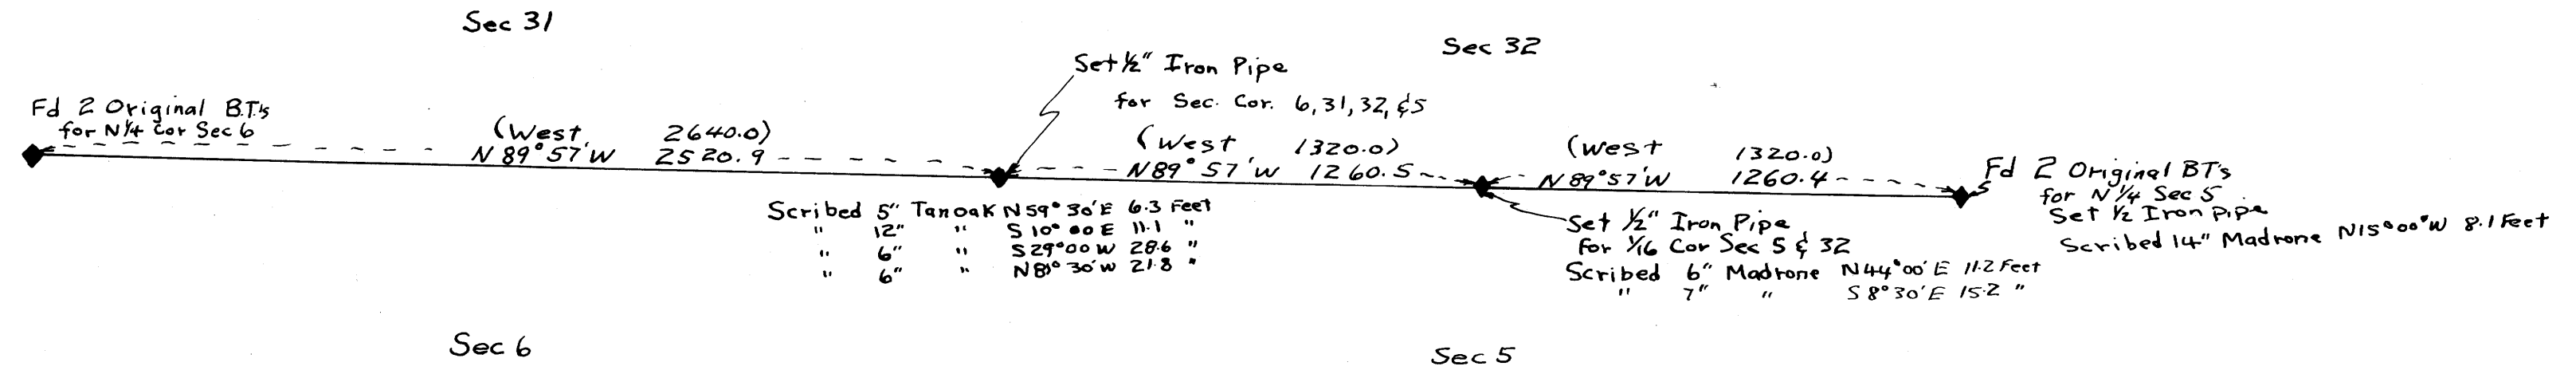 Sec 31
Sec 32
Set ½" Iron Pipe
for Sec. Cor. 6, 31, 32, & 5
Fd 2 Original B.T.'s
for N¼ Cor Sec 6
(West 2640.0)
N 89° 57' W 2520.9
(West 1320.0)
N 89° 57' W 1260.5
(West 1320.0)
N 89° 57' W 1260.4
Fd 2 Original BT's
for N ¼ Sec 5
Set ½ Iron pipe
Scribed 14" Madrone N15°00'W 8.1 Feet
Scribed 5" Tanoak N 59° 30' E 6.3 Feet
" 12" " S 10° 00 E 11.1 "
" 6" " S 29° 00 W 28.6 "
" 6" " 30' W 21.8 "
Set ½" Iron Pipe
for 1/16 Cor Sec 5 & 32
Scribed 6" Madrone N 44° 00' E 11.2 Feet
" 7" " S 8° 30' E 15.2 "
Sec 6
Sec 5